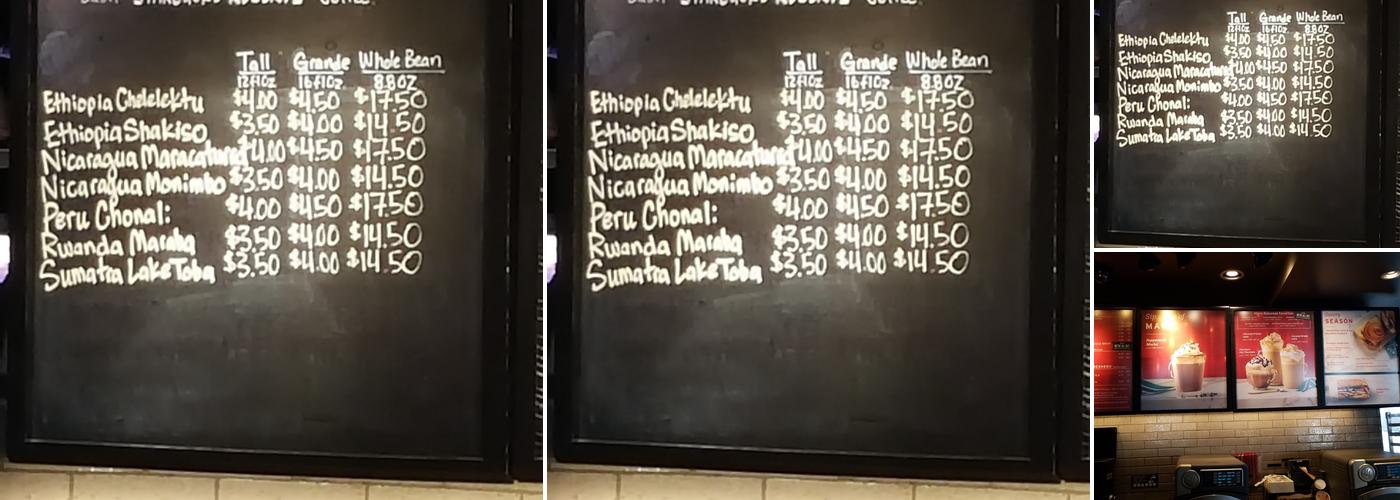 Tall Grande Whole Bean
12floz 16floz 8.8oz
Ethiopia Chelelektu $4.00 $4.50 $17.50
Ethiopia Shakiso $3.50 $4.00 $14.50
Nicaragua Maracaturra $4.00 $4.50 $17.50
Nicaragua Monimbo $3.50 $4.00 $14.50
Peru Chonal: $4.00 $4.50 $17.50
Rwanda Maraba $3.50 $4.00 $14.50
Sumatra Lake Toba $3.50 $4.00 $14.50
Tall Grande Whole Bean
12floz 16floz 8.8oz
Ethiopia Chelelektu $4.00 $4.50 $17.50
Ethiopia Shakiso $3.50 $4.00 $14.50
Nicaragua Maracaturra $4.00 $4.50 $17.50
Nicaragua Monimbo $3.50 $4.00 $14.50
Peru Chonal: $4.00 $4.50 $17.50
Rwanda Maraba $3.50 $4.00 $14.50
Sumatra Lake Toba $3.50 $4.00 $14.50
Tall Grande Whole Bean
12floz 16floz 8.8oz
Ethiopia Chelelektu $4.00 $4.50 $17.50
Ethiopia Shakiso $3.50 $4.00 $14.50
Nicaragua Maracaturra $4.00 $4.50 $17.50
Nicaragua Monimbo $3.50 $4.00 $14.50
Peru Chonal: $4.00 $4.50 $17.50
Rwanda Maraba $3.50 $4.00 $14.50
Sumatra Lake Toba $3.50 $4.00 $14.50
SEASON